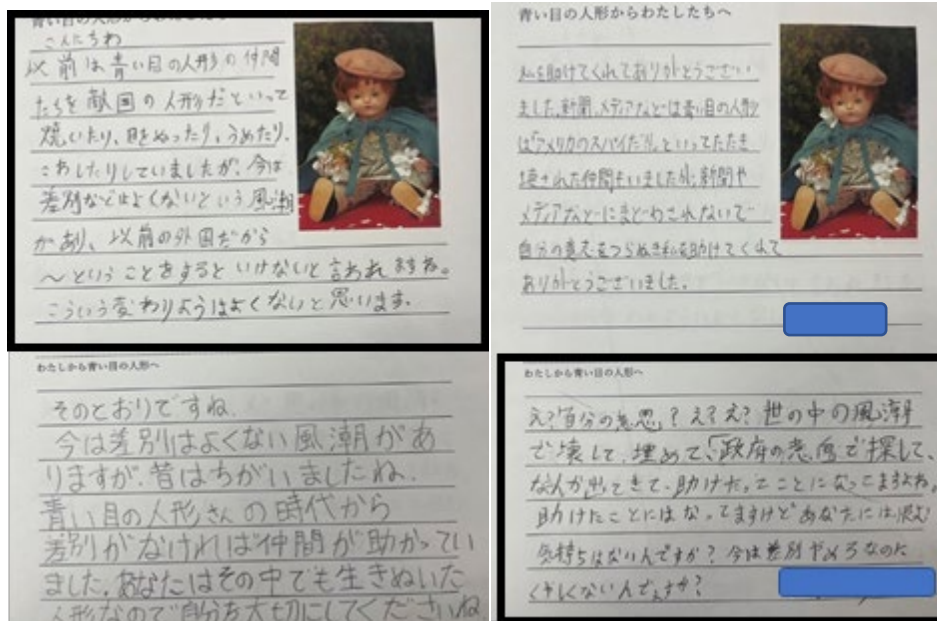 青い目の人形からわたしたちへ
こんにちわ
以前は青い目の人形の仲間
たちを敵国の人形だといって
焼いたり、目をぬったり、うめたり、
こわしたりしていましたが、今は
差別などはよくないという風潮
があり、以前の外国だから
～ということをするといけないと言われますね。
こういう変わりようはよくないと思います。
わたしから青い目の人形へ
そのとおりですね。
今は差別はよくない風潮があ
りますが、昔はちがいましたね。
青い目の人形さんの時代から
差別がなければ仲間が助かってい
ました。あなたはその中でも生きぬいた
人形なので自分を大切にしてくださいね
青い目の人形からわたしたちへ
私を助けてくれてありがとうござい
ました。新聞、メディアなどは青い目の人形
は「アメリカのスパイだ!!」といってたたき
壊された仲間もいましたが、新聞や
メディアなどにまどわされないで
自分の意志をつらぬき私を助けてくれて
ありがとうございました。
わたしから青い目の人形へ
え?自分の意思?え?え?世の中の風潮
で壊して、埋めて、政府の意向で探して、
なんか出てきて、助けたってことになってますよね。
助けたことにはなってますけどあなたには
気持ちはないんですか?今は差別やめろなのに
くやしくないんですか?